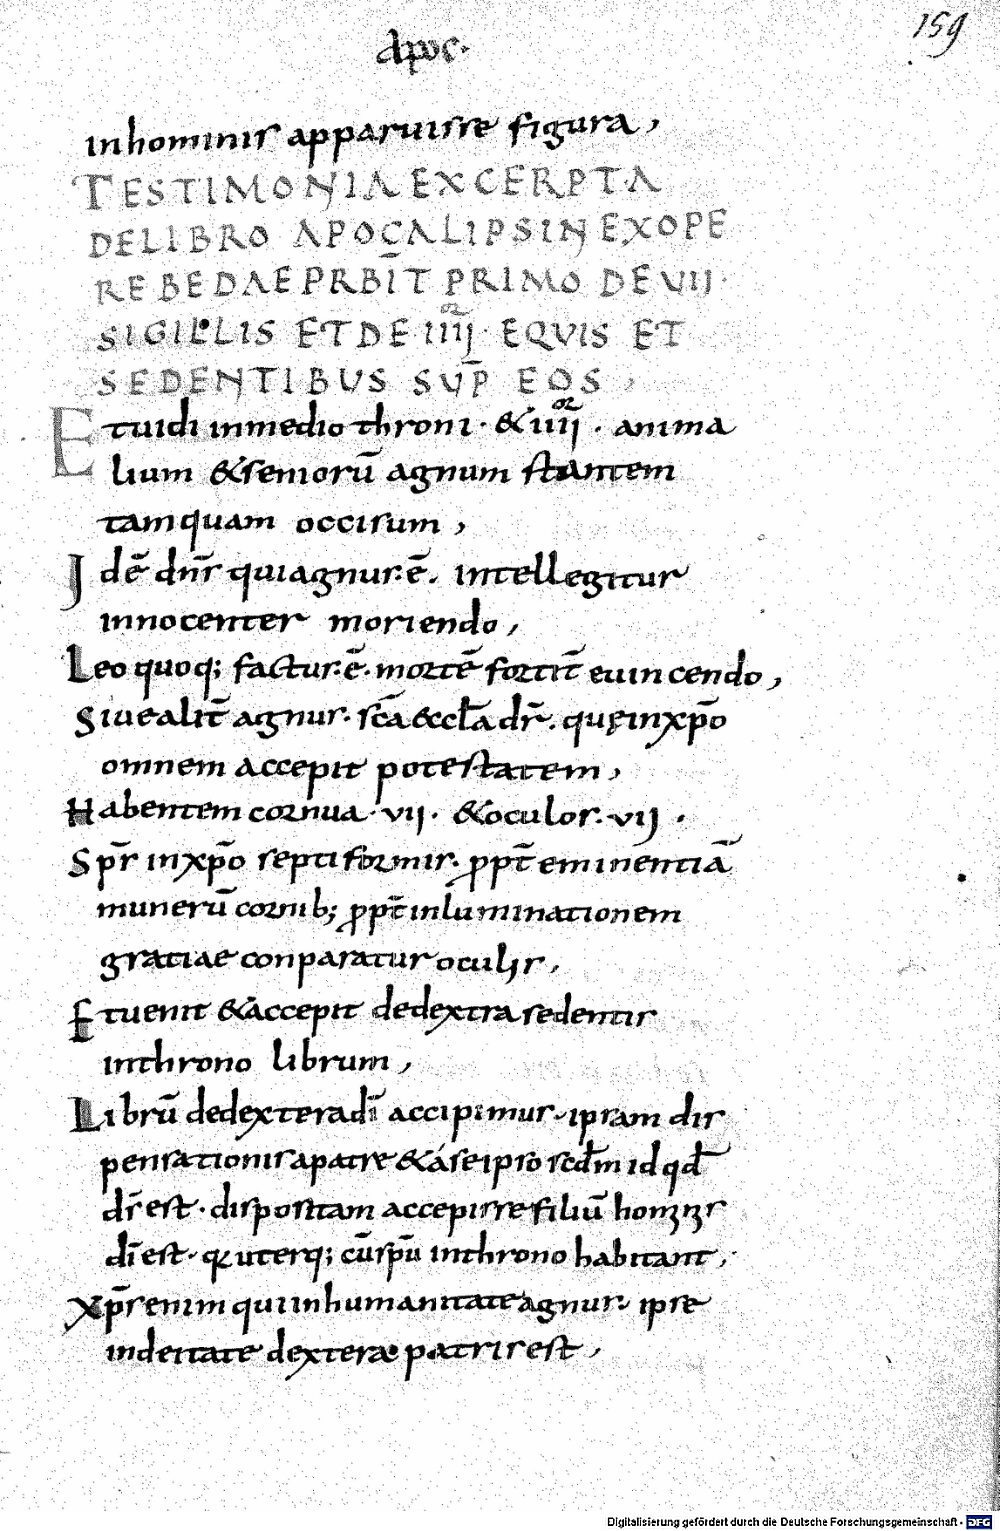 159
Apoc.
in hominis apparuisse figura,
TESTIMONIA EXCERPTA
DE LIBRO APOCALIPSIN EX OPE
RE BEDAE PRBĪT PRIMO DE VIJ.
SIGILLIS ET DE IIIJ. EQVIS ET
SEDENTIBUS SUP̄ EOS,
Et uidi in medio throni. & iiij. anima
lium & seniorū agnum stantem
tamquam occisum,
Idē dn̄s qui agnus.ē. intellegitur
innocenter moriendo,
Leo quoq; factus.ē. mortē fortit̄ euincendo,
Siue alit̄ agnus. sc̄a &ccl̄a dr̄. quę in xp̄o
omnem accepit potestatem,
Habentem cornua. vii. & oculos. vij.
Sp̄s in xp̄o septiformis. ꝓpt̄ eminentiā
munerū cornib; ꝓpt̄ inluminationem
gratiae conparatur oculis,
Et uenit & accepit de dextra sedentis
in throno librum,
Librū de dextera dī accipimus. ipsam dis
pensationis a patre & á se ipso scdm̄ id qd̄
dr̄ est. dispositam accepisse filiū hominis
dī est. q uterq; cū sp̄u in throno habitant,
Xp̄s enim qui in humanitate agnus. ipse
in deitate dexterae patris est,
Digitalisierung gefördert durch die Deutsche Forschungsgemeinschaft - DFG